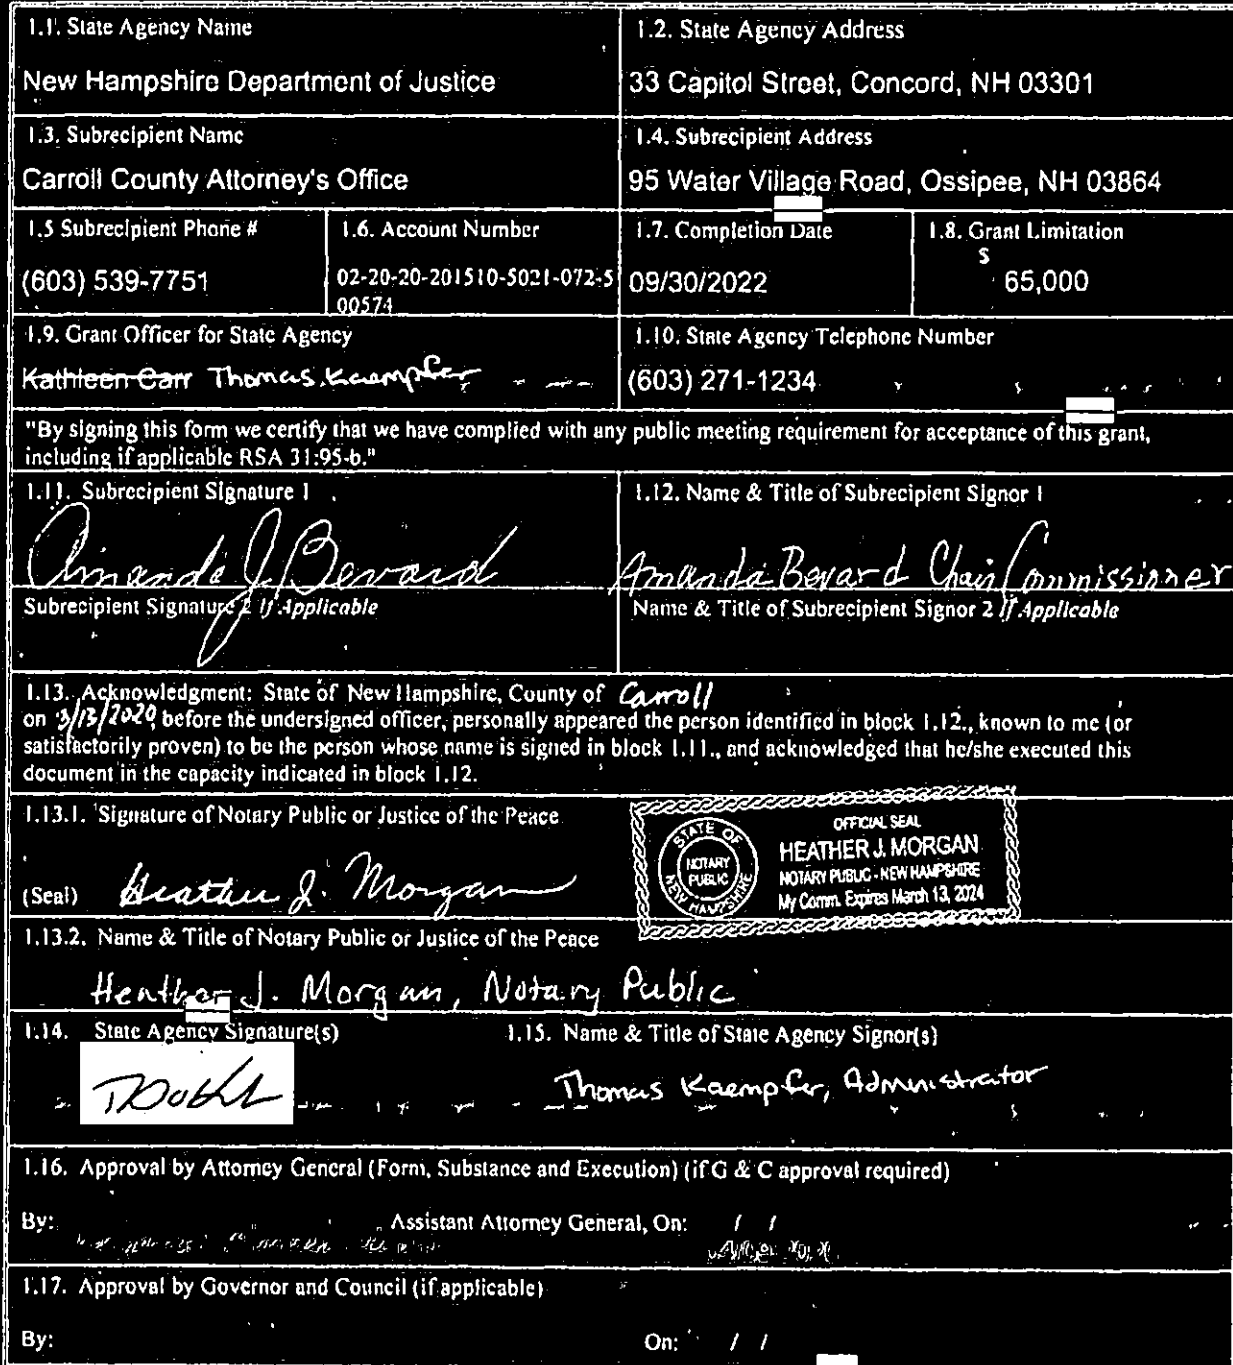 1.1. State Agency Name
1.2. State Agency Address
New Hampshire Department of Justice
33 Capitol Street, Concord, NH 03301
1.3. Subrecipient Name
1.4. Subrecipient Address
Carroll County Attorney's Office
95 Water Village Road, Ossipee, NH 03864
1.5 Subrecipient Phone #
1.6. Account Number
1.7. Completion Date
1.8. Grant Limitation
(603) 539-7751
02-20-20-201510-5021-072-5
00574
09/30/2022
$
65,000
1.9. Grant Officer for State Agency
1.10. State Agency Telephone Number
Kathleen Carr Thomas Kaempfer
(603) 271-1234
"By signing this form we certify that we have complied with any public meeting requirement for acceptance of this grant,
including if applicable RSA 31:95-b."
1.11. Subrecipient Signature 1
1.12. Name & Title of Subrecipient Signor 1
Amanda J. Bevard
Amanda Bevard Chair Commissioner
Subrecipient Signature 2 If Applicable
Name & Title of Subrecipient Signor 2 If Applicable
1.13. Acknowledgment: State of New Hampshire, County of Carroll
on 3/13/2020, before the undersigned officer, personally appeared the person identified in block 1.12., known to me (or
satisfactorily proven) to be the person whose name is signed in block 1.11., and acknowledged that he/she executed this
document in the capacity indicated in block 1.12.
1.13.1. Signature of Notary Public or Justice of the Peace
(Seal) Heather J. Morgan
STATE OF
NOTARY
PUBLIC
NEW HAMPSHIRE
OFFICIAL SEAL
HEATHER J. MORGAN
NOTARY PUBLIC - NEW HAMPSHIRE
My Comm. Expires March 13, 2024
1.13.2. Name & Title of Notary Public or Justice of the Peace
Heather J. Morgan, Notary Public
1.14. State Agency Signature(s)
1.15. Name & Title of State Agency Signor(s)
Thomas Kaempfer, Administrator
1.16. Approval by Attorney General (Form, Substance and Execution) (if G & C approval required)
By: Assistant Attorney General, On: / /
1.17. Approval by Governor and Council (if applicable)
By: On: / /